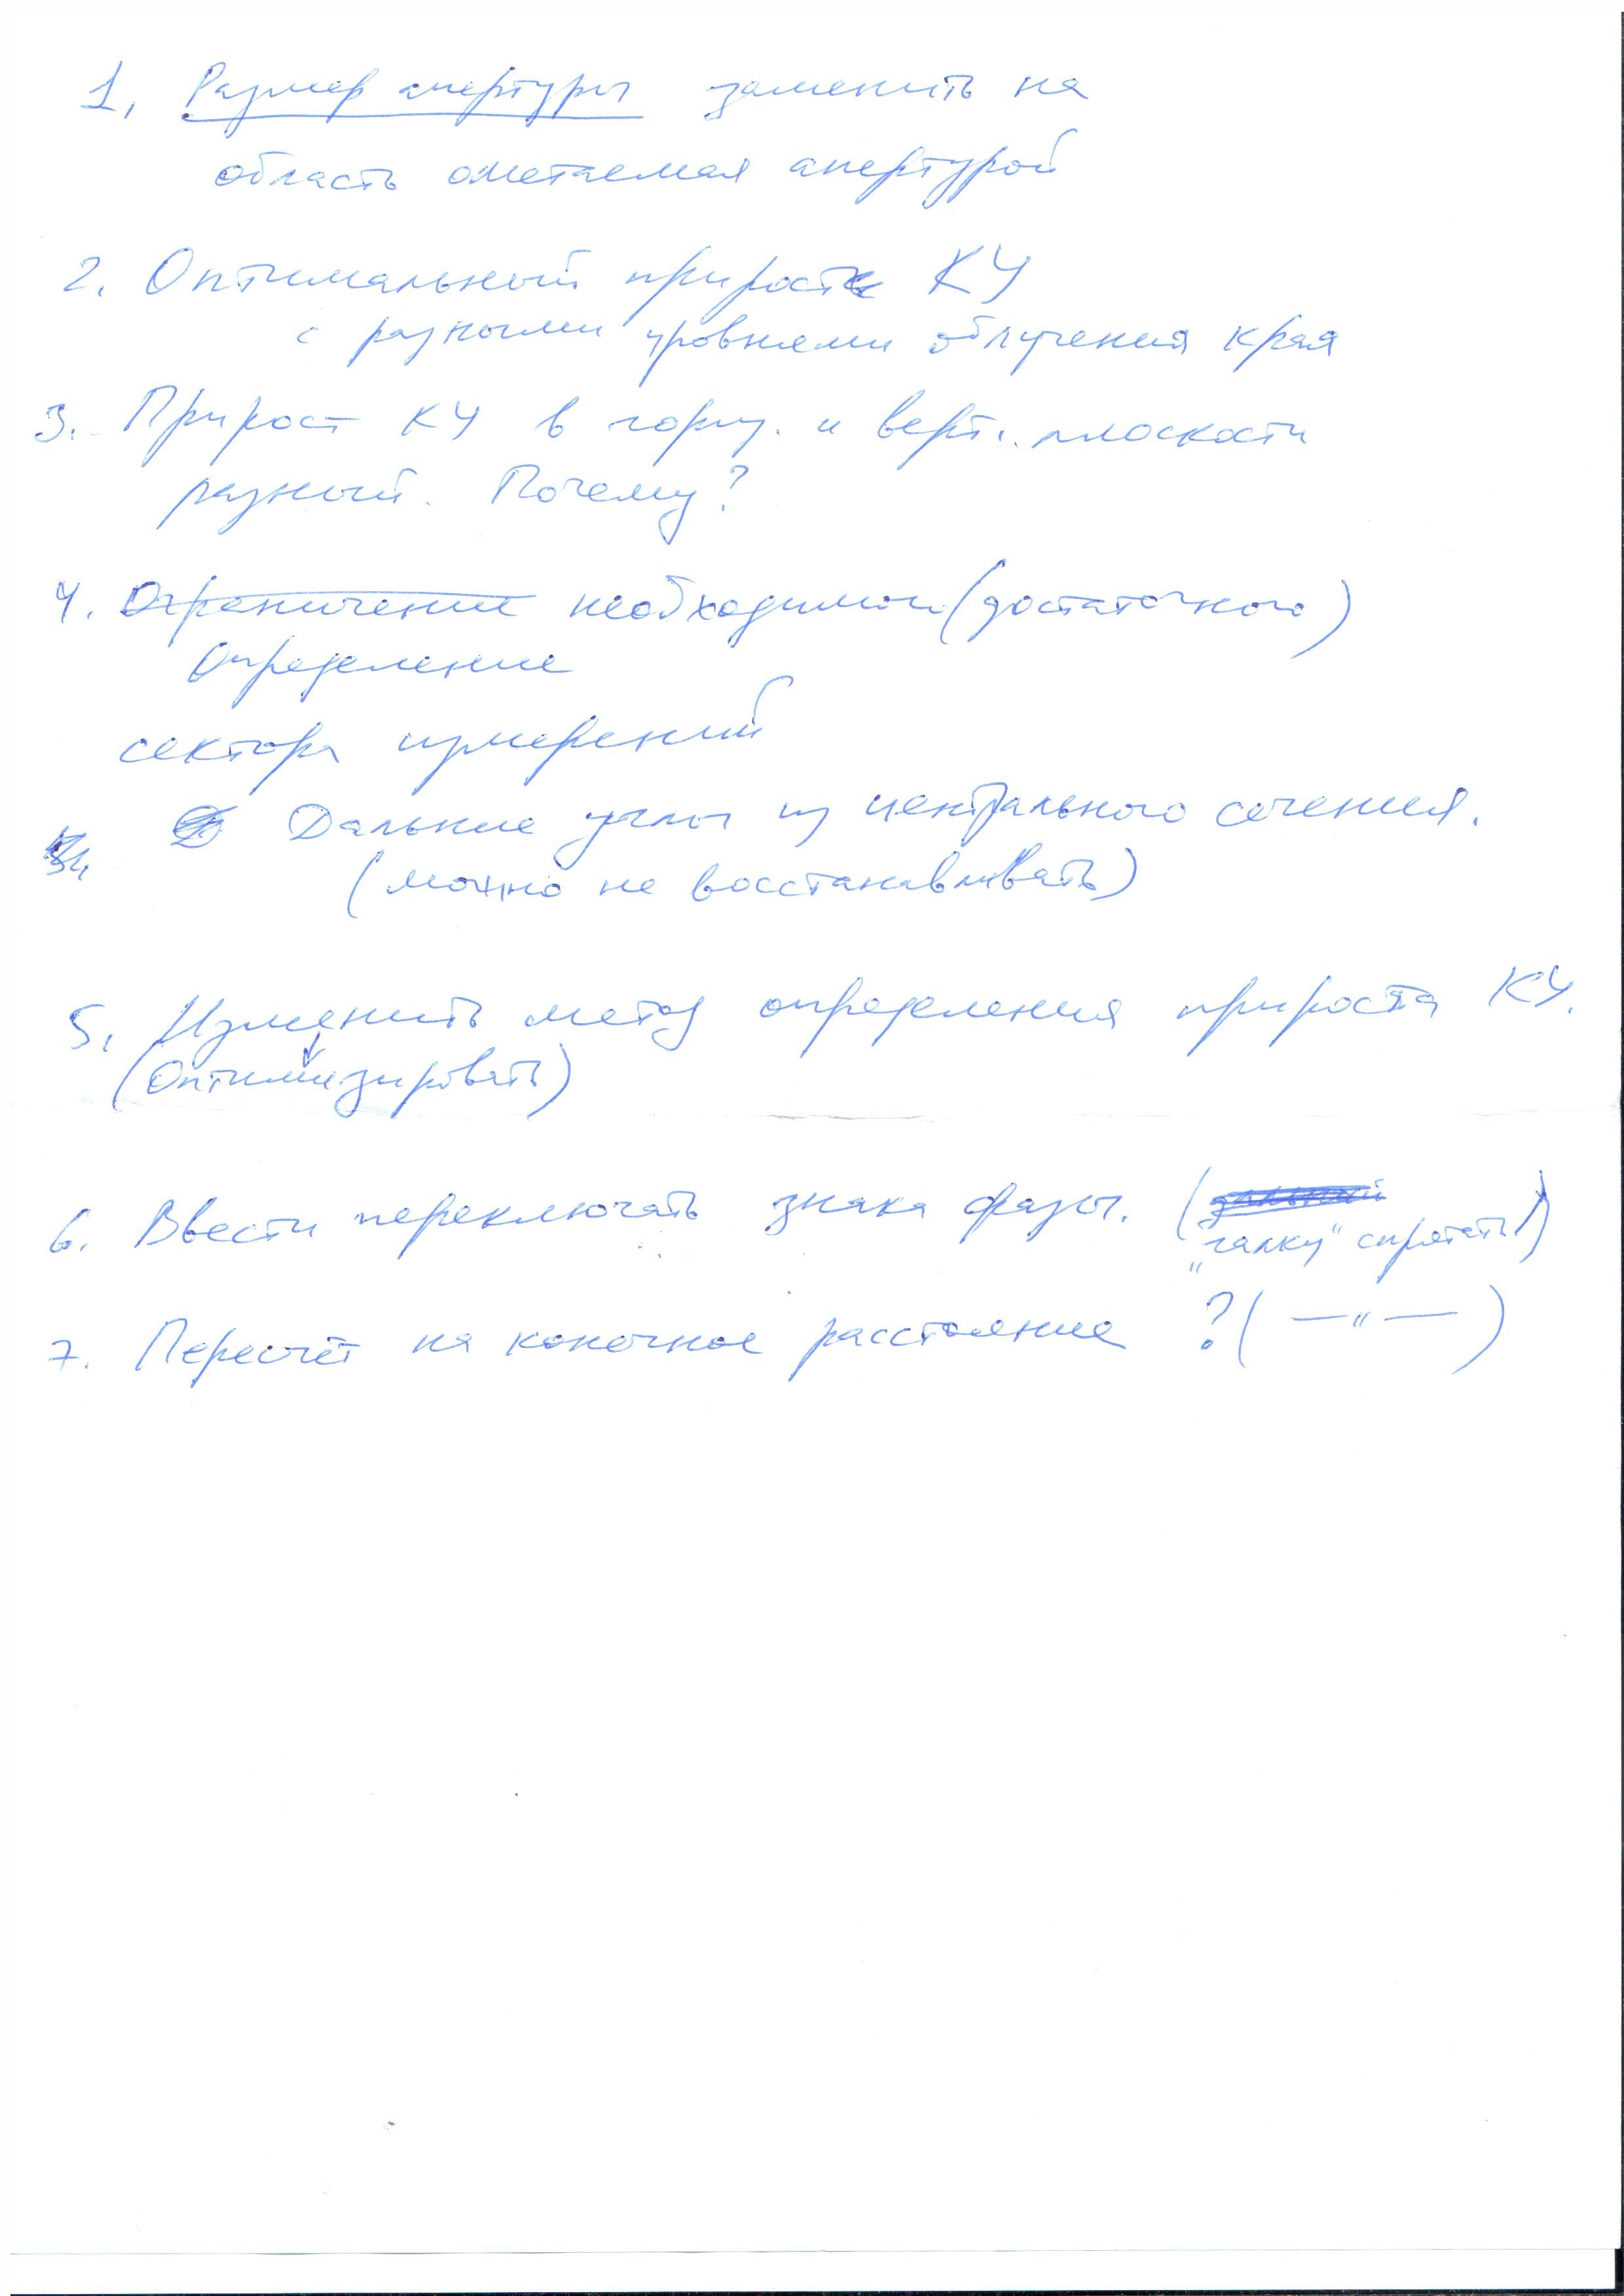 1. Размер апертуры заменить на
область ометаемая апертурой
2. Оптимальный прирост КУ
с разными уровнями облучения края
3. Прирост КУ в гориз. и верт. плоскости
разный. Почему?
4. Ограничение необходимого (достаточного)
Определение
сектора измерений
Дальние углы из центрального сечения.
(можно не восстанавливать)
5. Изменить метод определения прироста КУ.
(Оптимизировать)
6. Ввести переключать знака фазы. (
"галку" спрятать!)
7. Пересчёт на конечное расстояние ? ( —"— )